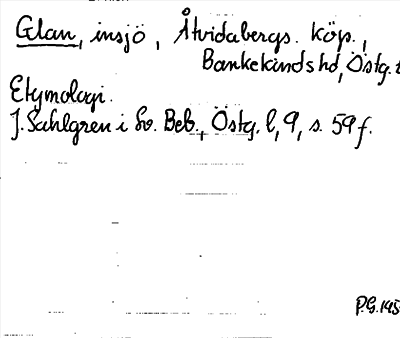 Glan, insjö, Åtvidabergs. köp.,
Bankekinds hd, Östg.
Etymologi.
J. Sahlgren i Sv. Beb., Östg. l, 9, s. 59 f.
P.G. 145